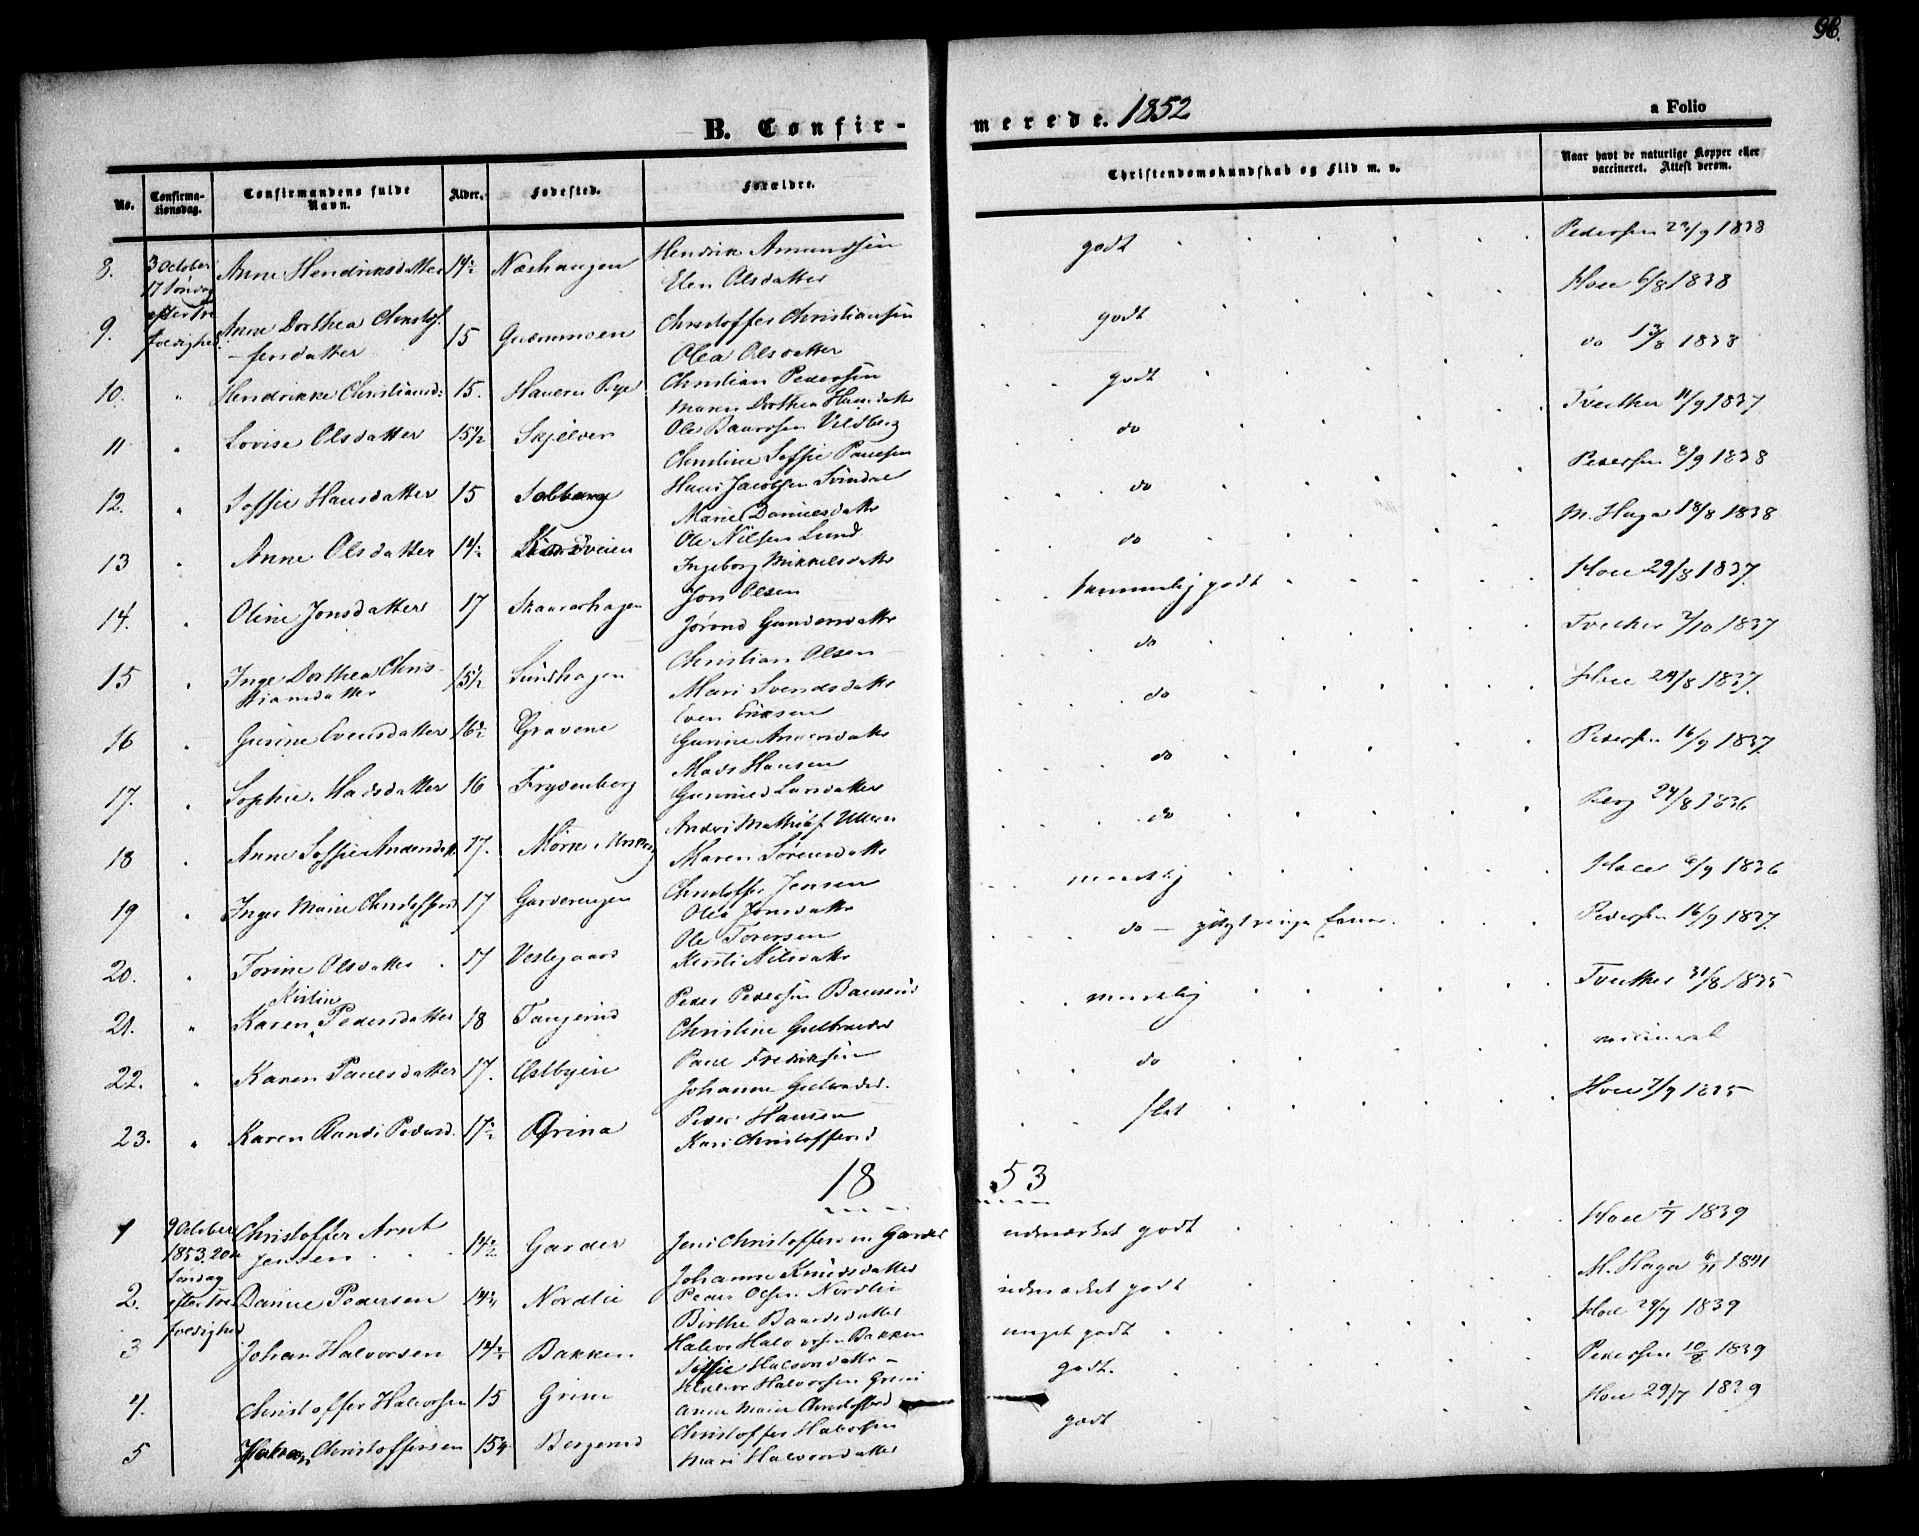 96.
B. Confirmerede. 1852
a Folio
No. Confirmationsdag. Confirmandens fulde Navn. Alder. Fødested. Forældre. Christendomskundskab og Flid m. v. Naar havt de naturlige Kopper eller vaccineret. Attest derom.
8. 3 October 17 Søndag efter Trefoldighed. Anne Hendriksdatter 14½ Næshaugen Hendrik Amundsen
Elen Olsdatter godt Pedersen 22/9 1838
9. Anne Dorthea Christoffersdatter 15 Christoffer Christiansen
Olea Olsdatter godt Hoel 6/8 1838
10. " Hendrikke Christiansd: 15. Christian Pedersen
Maren Dorthea Hansdatter godt do 13/8 1838
11 " Lovise Olsdatter 15½ Skjelver Ole Baardsen Vildberg
Christine Soffie Paulsen do Tvether 11/9 1837
12. " Soffie Hansdatter 15 Solberg Hans Jacobsen
Marie Danielsdatter do Pedersen 8/9 1838
13 " Anne Olsdatter 14½ Ole Nilsen Lund
Ingeborg Mikkelsdatter do M. Haga 18/8 1838
14. " Oline Jonsdatter 17 Skaarerhagen Jon Olsen
Jørond Gundersdatter temmelig godt Hoel 29/8 1837.
15 " Inge Dorthea Christiansdatter 15½ Sundhagen Christian Olsen
Mari Svendsdatter do Tvether 2/10 1837
16 " Gurine Evensdatter 16½ Gravene Even Eriksen
Gurine Andersdatter do Hoel 24/8 1837.
17. " Sophie Madsdatter 16 Frydenberg Mads Hansen
Gunnild Larsdatter do Pedersen 16/9 1837.
18 " Anne Soffie Andersdt. 17. Anders Mathis.
Maren Sørensdatter do Berg 24/8 1836
19 " Inger Marie Christoffersd 17 Garderengen Christoffer Jensen
Olea Jonsdatter maadelig Hoel 6/9 1836
20. " Torine Olsdatter 17 Veslegaard Ole Torersen
Kersti Nilsdatter do Pedersen 16/9 1837.
21. " Karen Kirstine Pedersdatter 18 Tangerud Peder Pedersen
Christine Gulbrandsd maadelig Tvether 31/8 1835
22. " Karen Paulsdatter 17. Østbyeie Paul Fredriksen
Johanne Gulbrandsd. do vaccineret
23. " Karen Randi Pedersd. 17½ Grina Peder Hansen
Kari Christoffersd slet Hoel 7/9 1835
18 53
1 9 October 1853. 20de Søndag efter Trefoldighed Christoffer Arnt Jensen 14½ Garder Jens Christoffersen Garder
Johanne Knudsdatter udmærket godt Hoel 1/7 1839
2. Daniel Pedersen 14¾ Nordlie Peder Olsen Nordlie
Birthe Baardsdatter udmærket godt M. Haga 6/11 1841
3 Johan Halvorsen 14½ Bakken Halvor Halvorsen Bakken
Soffie Halvorsdatter meget godt Hoel 29/7 1839
4. Christoffer Halvorsen 15 Grini Halvor Halvorsen Grini
Anne Marie Christoffersd godt. Pedersen 10/8 1839
5 Christoffersen 15¼ Bergerud Christoffer Halvorsen
Mari Halvorsdatter godt Hoel 29/7 1839